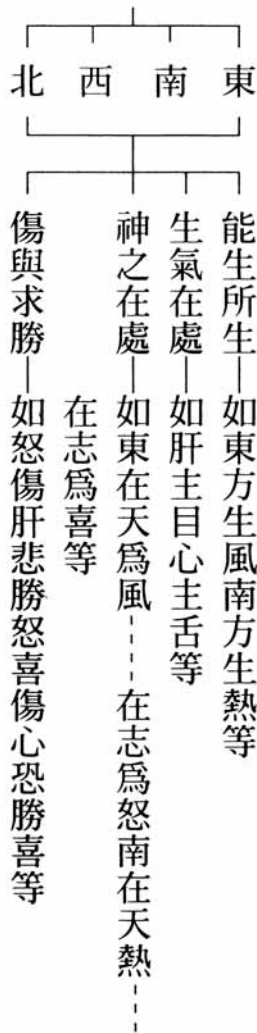 東 南 西 北
能生所生—如東方生風南方生熱等
生氣在處—如肝主目心主舌等
神之在處—如東在天爲風-----在志爲怒南在天熱-----
在志爲喜等
傷與求勝—如怒傷肝悲勝怒喜傷心恐勝喜等